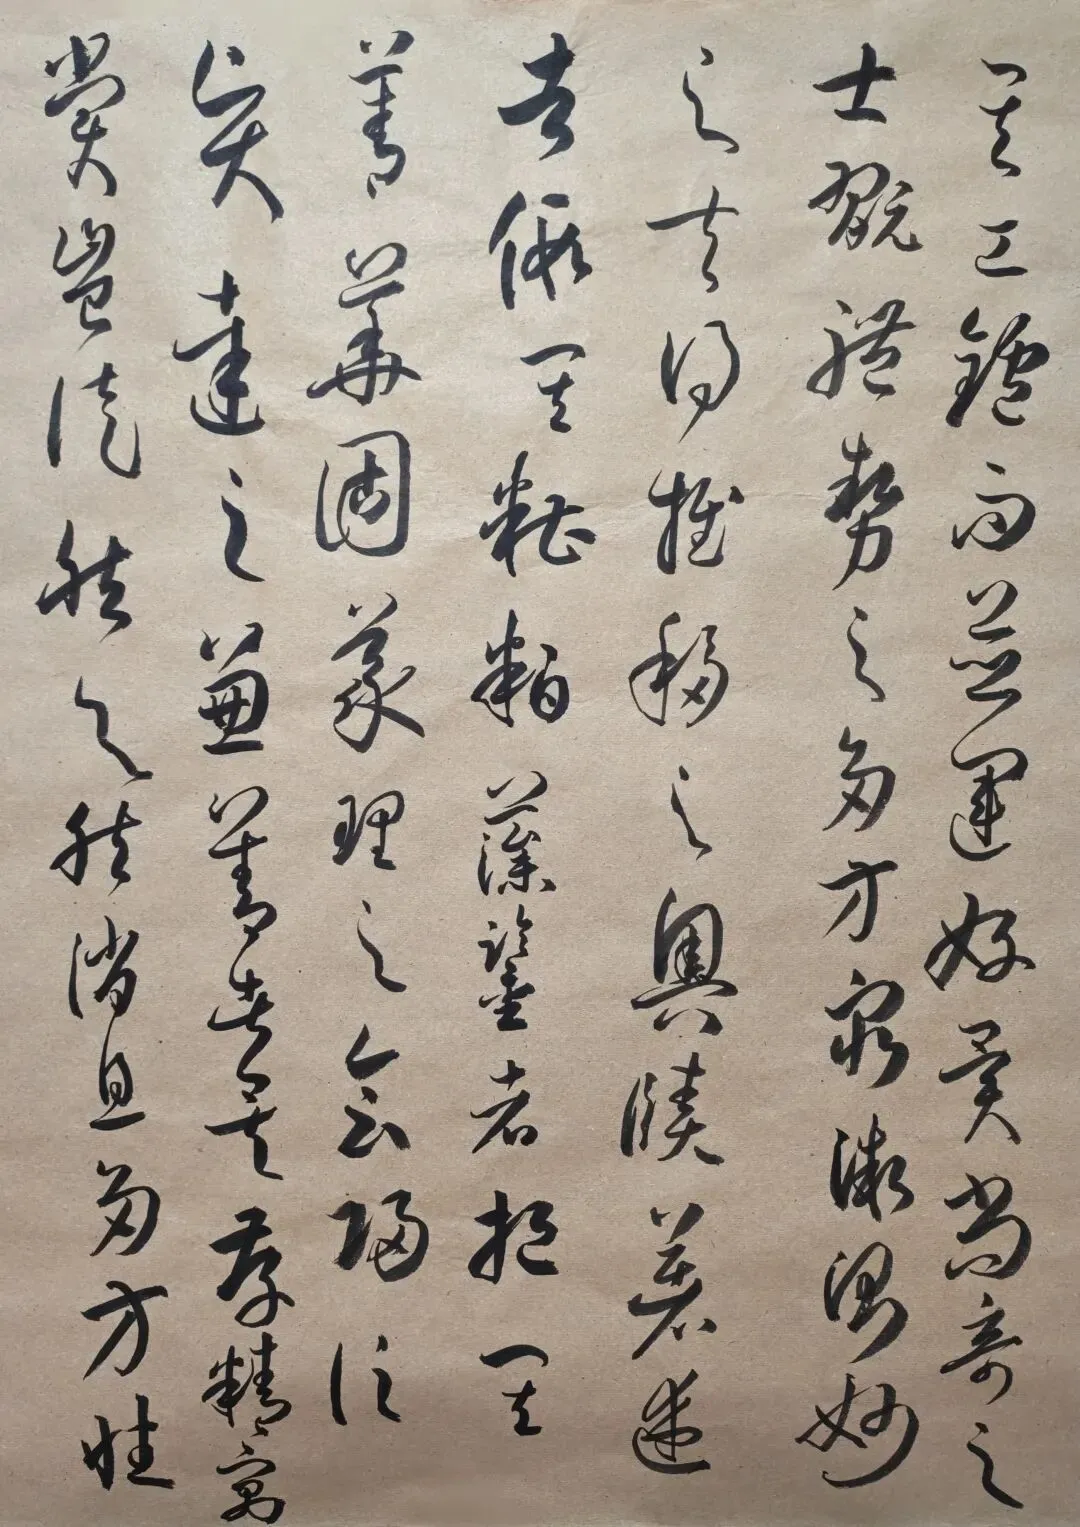 共工鑪而並運好異尚奇之
士翫體勢之多方窮微測妙
之夫得推移之奧賾著述
者假其糟粕藻鑒者挹其
菁華固義理之會歸信
賢達之兼善者矣存精寓
賞豈徒然与然消息多方性